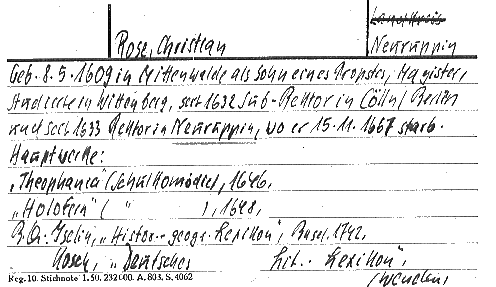 Rose, Christian
Landkreis
Neuruppin
Geb. 8.5.1609 in Mittenwalde als Sohn eines Propstes, Magister,
studierte in Wittenberg, seit 1632 Sub-Rektor in Cölln/Berlin
und seit 1633 Rektor in Neuruppin, wo er 15.11.1667 starb.
Hauptwerke:
„Theophania" (Schulkomödie), 1646,
„Holofern" ( " ), 1648,
Iselin, „Histor.-geogr. Lexikon", Basel, 1742,
Kosch, „Deutsches Lit.-Lexikon",
Reg. 10. Stichnote 1. 50. 232000. A. 803. S. 4062